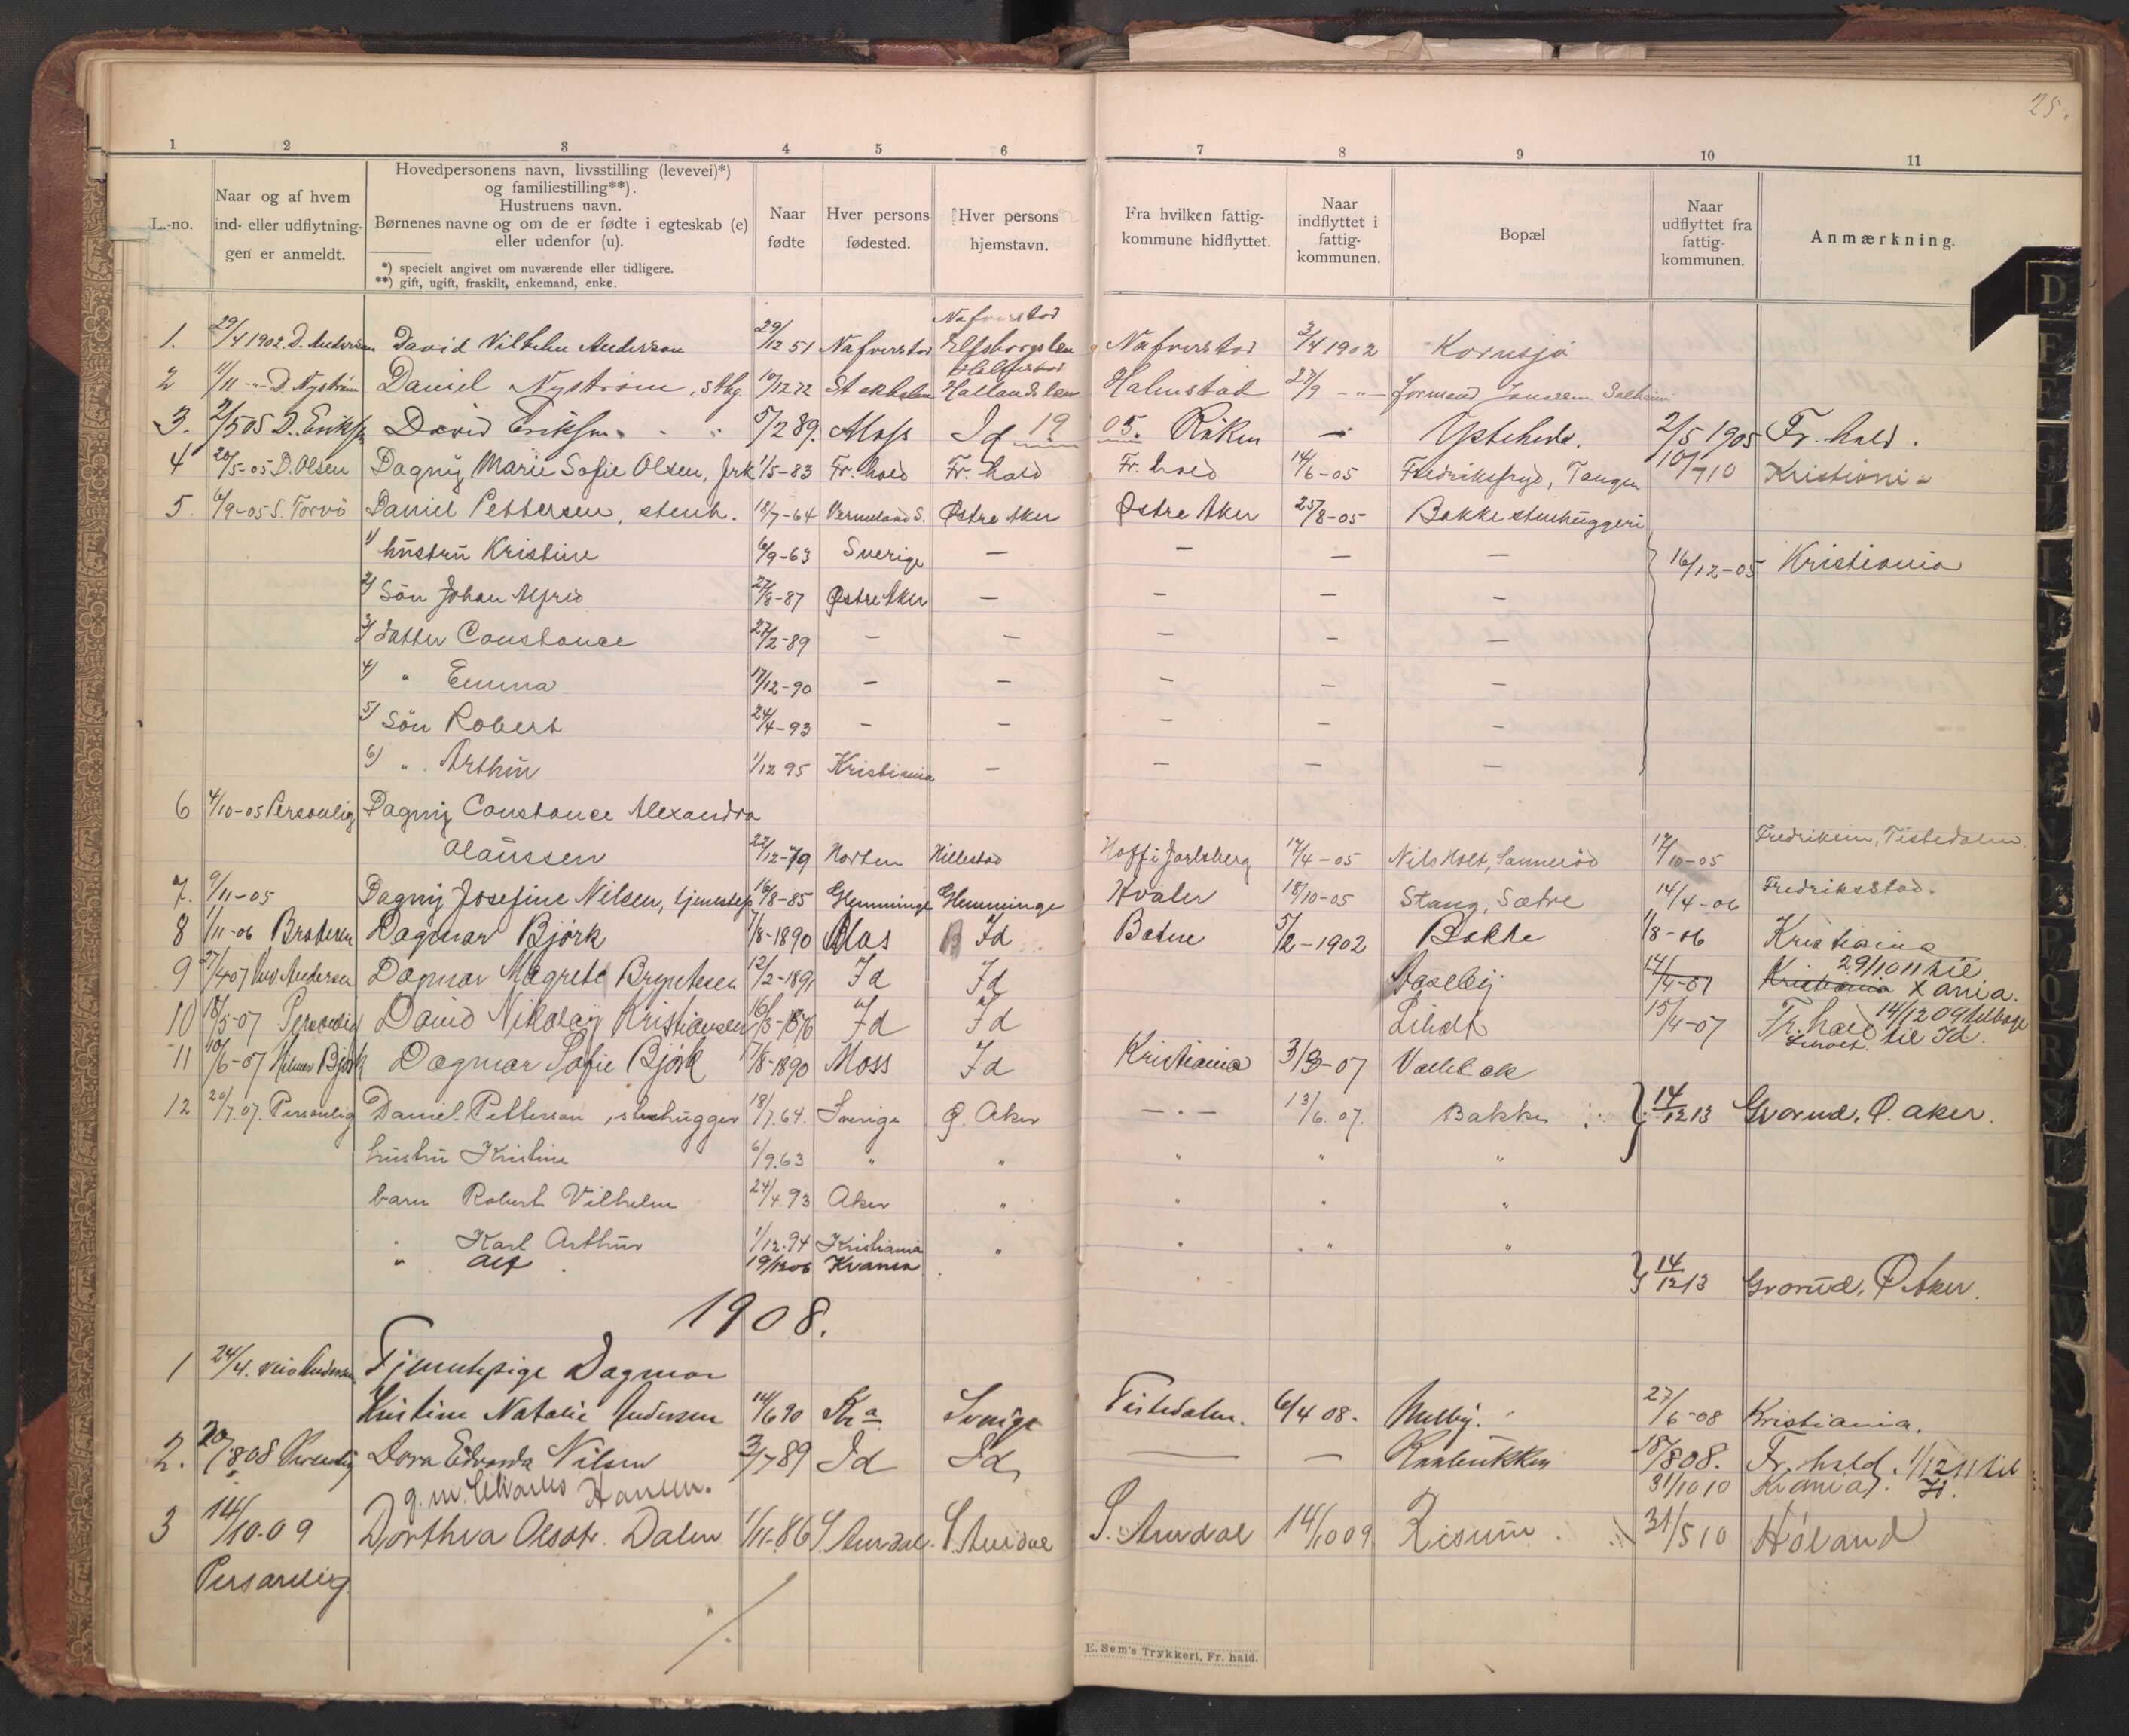 25.
1 2 3 4 5 6 7 8 9 10 11
L.-no.
Naar og af hvem
ind- eller udflytnin-
gen er anmeldt.
Hovedpersonens navn, livsstilling (levevei)*)
og familiestilling**).
Hustruens navn.
Børnenes navne og om de er fødte i egteskab (e)
eller udenfor (u).
*) specielt angivet om nuværende eller tidligere.
**) gift, ugift, fraskilt, enkemand, enke.
Naar
fødte
Hver persons
fødested.
Hver persons
hjemstavn.
Fra hvilken fattig-
kommune hidflyttet.
Naar
indflyttet i
fattig-
kommunen.
Bopæl
Naar
udflyttet fra
fattig-
kommunen.
Anmærkning.
Nafverstad
1. 29/4 1902. D. Anderson David Vilhelm Anderson 29/12 51 Nafverstad Elfsborgslän Nafverstad 3/4 1902 Kornsjø
2 11/11 -"- D. Nyström Daniel Nyström, sthg. 10/12 72 Stockholm Hallandslän Halmstad 27/9 -"- formand
3. 2/5 05 D. Eriksen David Eriksen 5/2 89. Moss Id 19 05. Röken - 2/5 1905 Fr. hald.
4 20/5-05 D. Olsen Dagny Marie Sofie Olsen, frk 1/5-83 Fr. hald Fr. hald Fr. hald 14/6-05 Fredriksfryd, Tangen 10/7 10 Kristiania
5. 6/9-05 S. Torvö Daniel Pettersen, stenh. 18/7-64 Vermeland S. Østre Aker Østre Aker 25/8-05 Bakke stenhuggeri
1) hustru Kristine 6/9-63 Sverige - - - - 16/12-05 Kristiania
2) Sön Johan Alfred 27/8-87 Østre Aker - - - -
3) datter Constance 27/2-89 - - - - -
4) " Emma 17/12-90 - - - - -
5) Sön Robert 24/4-93 - - - - -
6) " Arthur 1/12 95 Kristiania - - - -
6 4/10-05 Personlig Dagny Constance Alexandra
Olaussen 22/12-79 Horten Hillestad Hoff i Jarlsberg 17/4-05 Nils Holt, Sannerød 17/10-05 Fredriksen, Tistedalen
7. 9/11-05 Dagny Josefine Nilsen, tjenestep. 16/8-85 Glemminge Glemminge Hvaler 18/10-05 Stang, Sætre 14/4-06 Fredriksstad.
8 1/11-06 Bratesen Dagmar Björk 1/8-1890 Mos Id 5/2-1902 Bakke 1/8-06 Kristiania
9 27/4 07 Andersen Dagmar Magrete Bryntesen 12/2-1891 Id Id Aaselby 14/4-07 Kristiania 29/10 11 til X ania.
10 18/5-07 Personlig David Nikolay Kristiansen 16/3-1876 Id Id Liholt 15/4-07 Fr. hald 14/12 09 tilbage
Liholt. til Id.
11 10/6-07 Hilmar Björk Dagmar Sofie Björk 1/8-1890 Moss Id Kristiania 3/3-07 Vælbak
12 20/7.07. Personlig Daniel Petterson, stenhugger 18/7.64. Sverige Ø. Aker - " - 13/6.07. Bakke 14/12 13 Grorud, Ø. aker.
hustru Kristine 6/9.63 " " " " "
barn Robert Vilhelm 24/4.93 Aker " " " "
" Karl Arthur 1/12.94 Kristiania " " " "
" Alf. 19/12 06 Krania 14/12 13 Grorud, Ø Aker.
1908.
1 24/4. Andersen Tjenestepige Dagmar
Kristine Natalie Andersen 14/6 90 Kr a Sverige Tistedalen. 6/4 08. 27/6-08 Kristiania.
2. 20/8 08 Personlig Dora Edvarda Nilsen 3/7 89 Id Id - - 18/8 08. Fr. hald. 1/12 11 til
g. m. Charles Hansen. 31/10 10 Krania Id.
3 14/10-09 Dorthea Olsdtr. Dalen 1/11-86 S. Aurdal. S. Aurdal S. Aurdal 14/10 09 Risum. 31/5 10 Høland
Personlig
E. Sem's Trykkeri, Fr. hald.
D
E
F